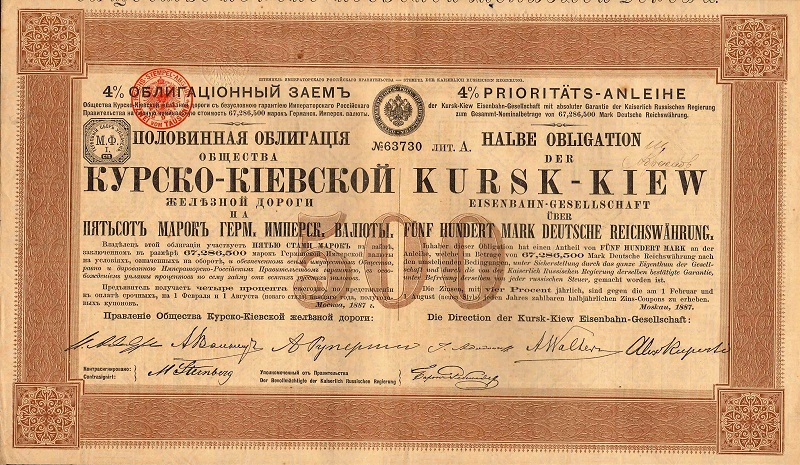 ШТЕМПЕЛЬ ИМПЕРАТОРСКАГО РОССІЙСКАГО ПРАВИТЕЛЬСТВА — STEMPEL DER KAISERLICH RUSSISCHEN REGIERUNG.
4% ОБЛИГАЦІОННЫЙ ЗАЕМЪ
Общества Курско-Кіевской желѣзной дороги съ безусловною гарантіею Императорскаго Россійскаго
Правительства на нарицательную стоимость 67,286,500 марокъ Германск. Имперск. валюты.
4% PRIORITÄTS-ANLEIHE
der Kursk-Kiew Eisenbahn-Gesellschaft mit absoluter Garantie der Kaiserlich Russischen Regierung
zum Gesammt-Nominalbetrage von 67,286,500 Mark Deutsche Reichswährung.
М.Ф.
I.
ПОЛОВИННАЯ ОБЛИГАЦІЯ
ОБЩЕСТВА
КУРСКО-КІЕВСКОЙ
ЖЕЛѢЗНОЙ ДОРОГИ
НА
ПЯТЬСОТЪ МАРОКЪ ГЕРМ. ИМПЕРСК. ВАЛЮТЫ.
№63730 ЛИТ. A.
500
HALBE OBLIGATION
DER
KURSK-KIEW
EISENBAHN-GESELLSCHAFT
ÜBER
FÜNF HUNDERT MARK DEUTSCHE REICHSWÄHRUNG.
Владѣлецъ этой облигаціи участвуетъ ПЯТЬЮ СТАМИ МАРОКЪ въ займѣ,
заключенномъ въ размѣрѣ 67,286,500 марокъ Германской Имперской валюты
Предъявитель получаетъ четыре процента ежегодно,
къ оплатѣ срочныхъ, на 1 Февраля и 1 Августа (новаго стиля) каждаго года,
выхъ купоновъ.
Москва, 1887 г.
Правленіе Общества Курско-Кіевской желѣзной дороги:
Inhaber dieser Obligation hat einen Antheil von FÜNF HUNDERT MARK an der
Anleihe, welche in Betrage von 67,286,500 Mark Deutsche Reichswährung nach
den umstehenden Bedingungen, unter Sicherstellung durch das ganze Eigenthum der Gesell-
schaft und durch die von der Kaiserlich Russischen Regierung derselben bestätigte Garantie,
unter Befreiung derselben von jeder russischen Steuer, gemacht worden ist.
Die Zinsen, mit vier Procent jährlich, sind gegen die am 1 Februar und
August (neuen Styls) jeden Jahres zahlbaren halbjährlichen Zins-Coupons zu erheben.
Moskau, 1887.
Die Direction der Kursk-Kiew Eisenbahn-Gesellschaft:
A Walter
Контрасигнировалъ:
Contrasignirt:
M Steinberg
Уполномоченный отъ Правительства
Der Bevollmächtigte der Kaiserlich Russischen Regierung